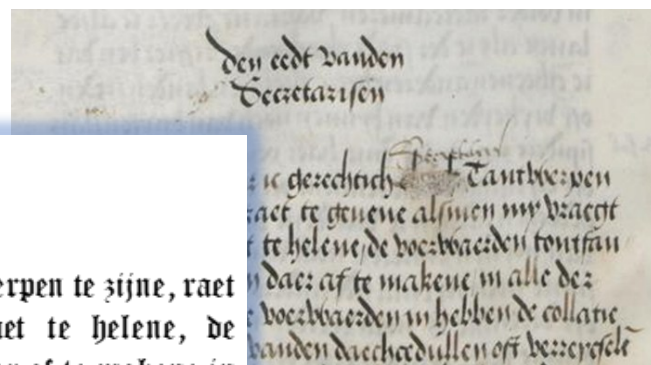 den eedt vanden
Secretarisen
ic gerechtich Tantwerpen
raet te geuene alsmen my vraecht
te helene, de voerwaerden
daer af te makene in alle der
voerwaerden in hebben de collatie
vanden daechcedullen oft
erpen te zijne, raet
et te helene, de